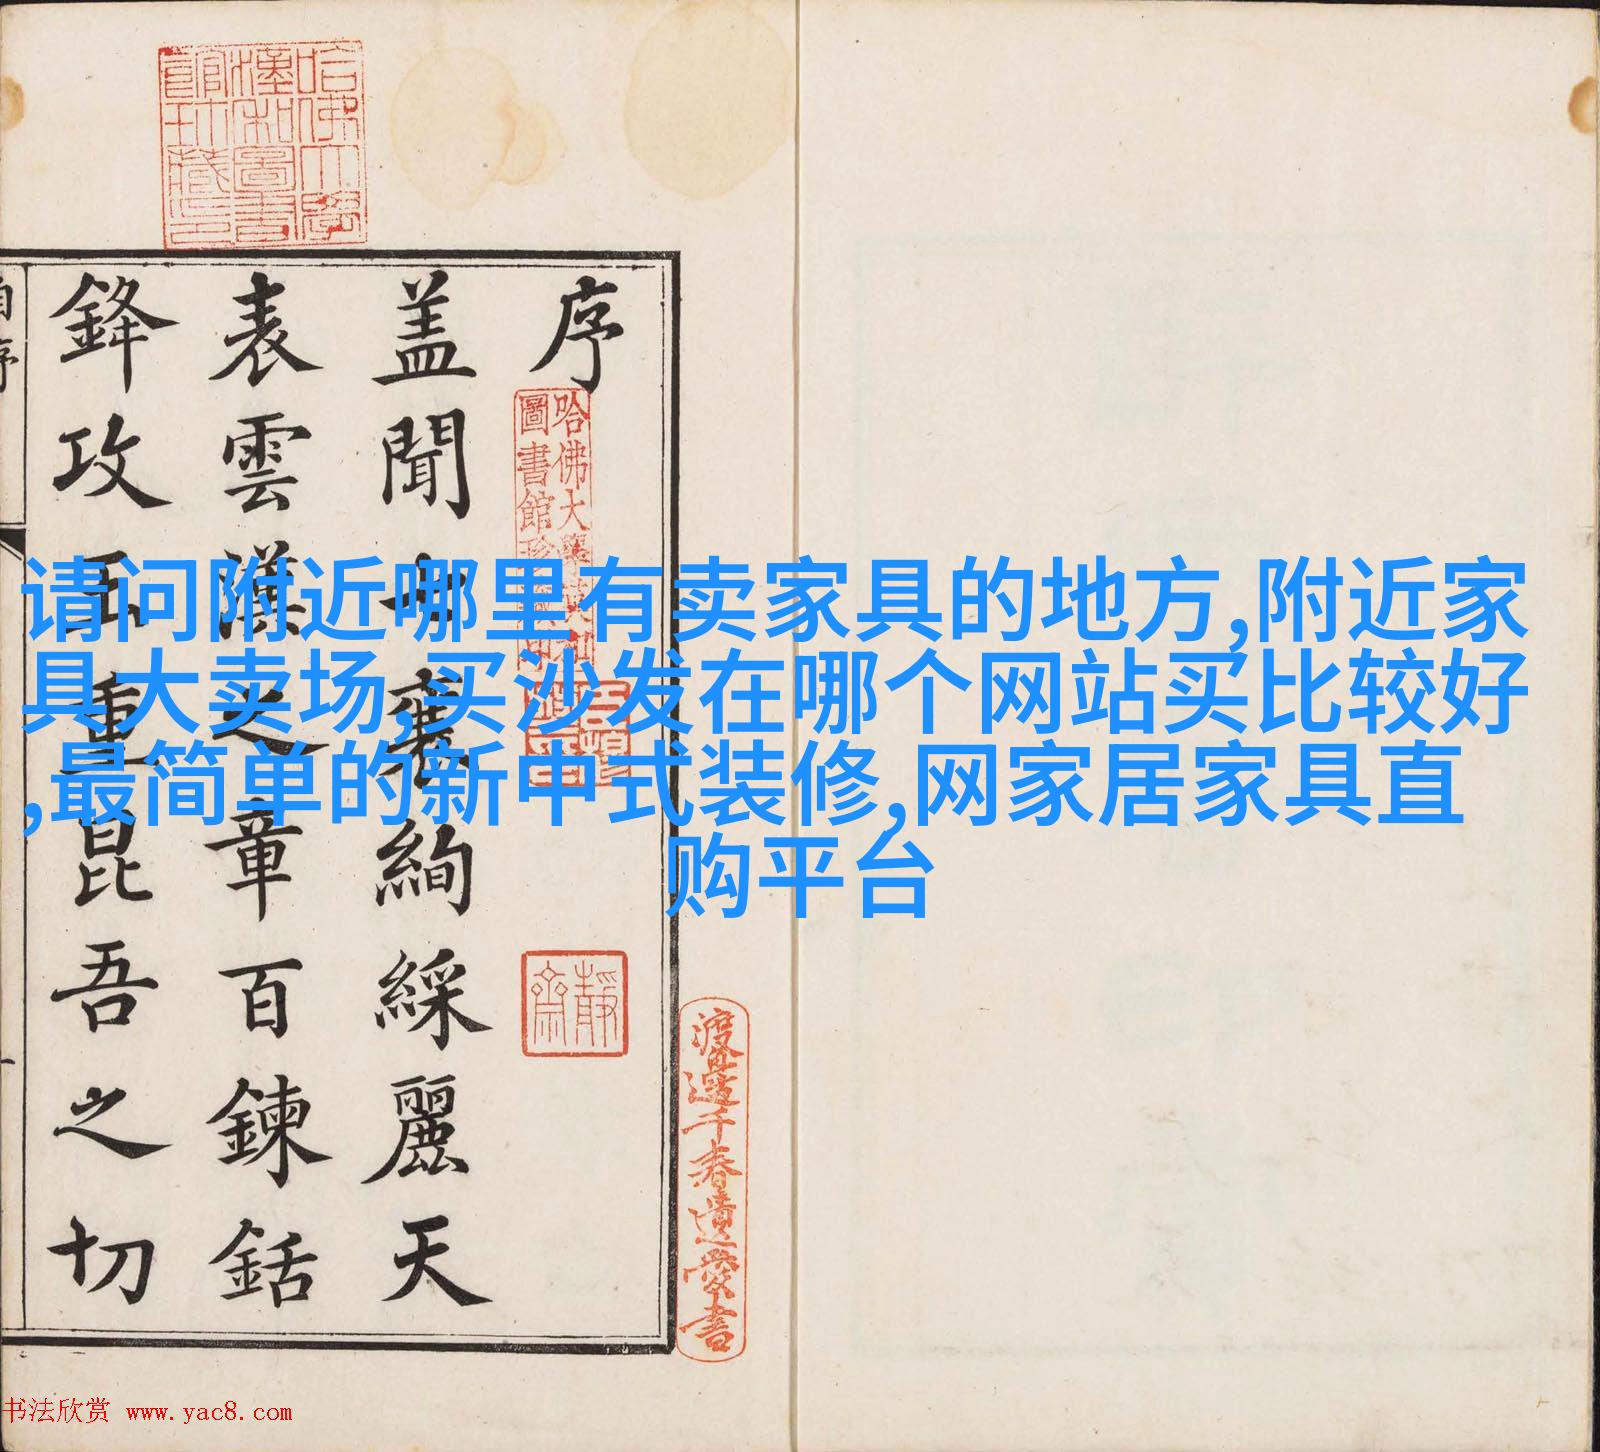 请问附近哪里有卖家具的地方,附近家
具大卖场,买沙发在哪个网站买比较好
,最简单的新中式装修,网家居家具直
购平台
序
盖聞
絢綵麗天
表雲漢之章百鍊銛
鋒攻玉重昆吾之切
哈佛大學漢和圖書館珍藏印
哈佛大
圖書館珍
靜齋
渡邊千春遺愛書
自序
书法欣赏 www.yac8.com